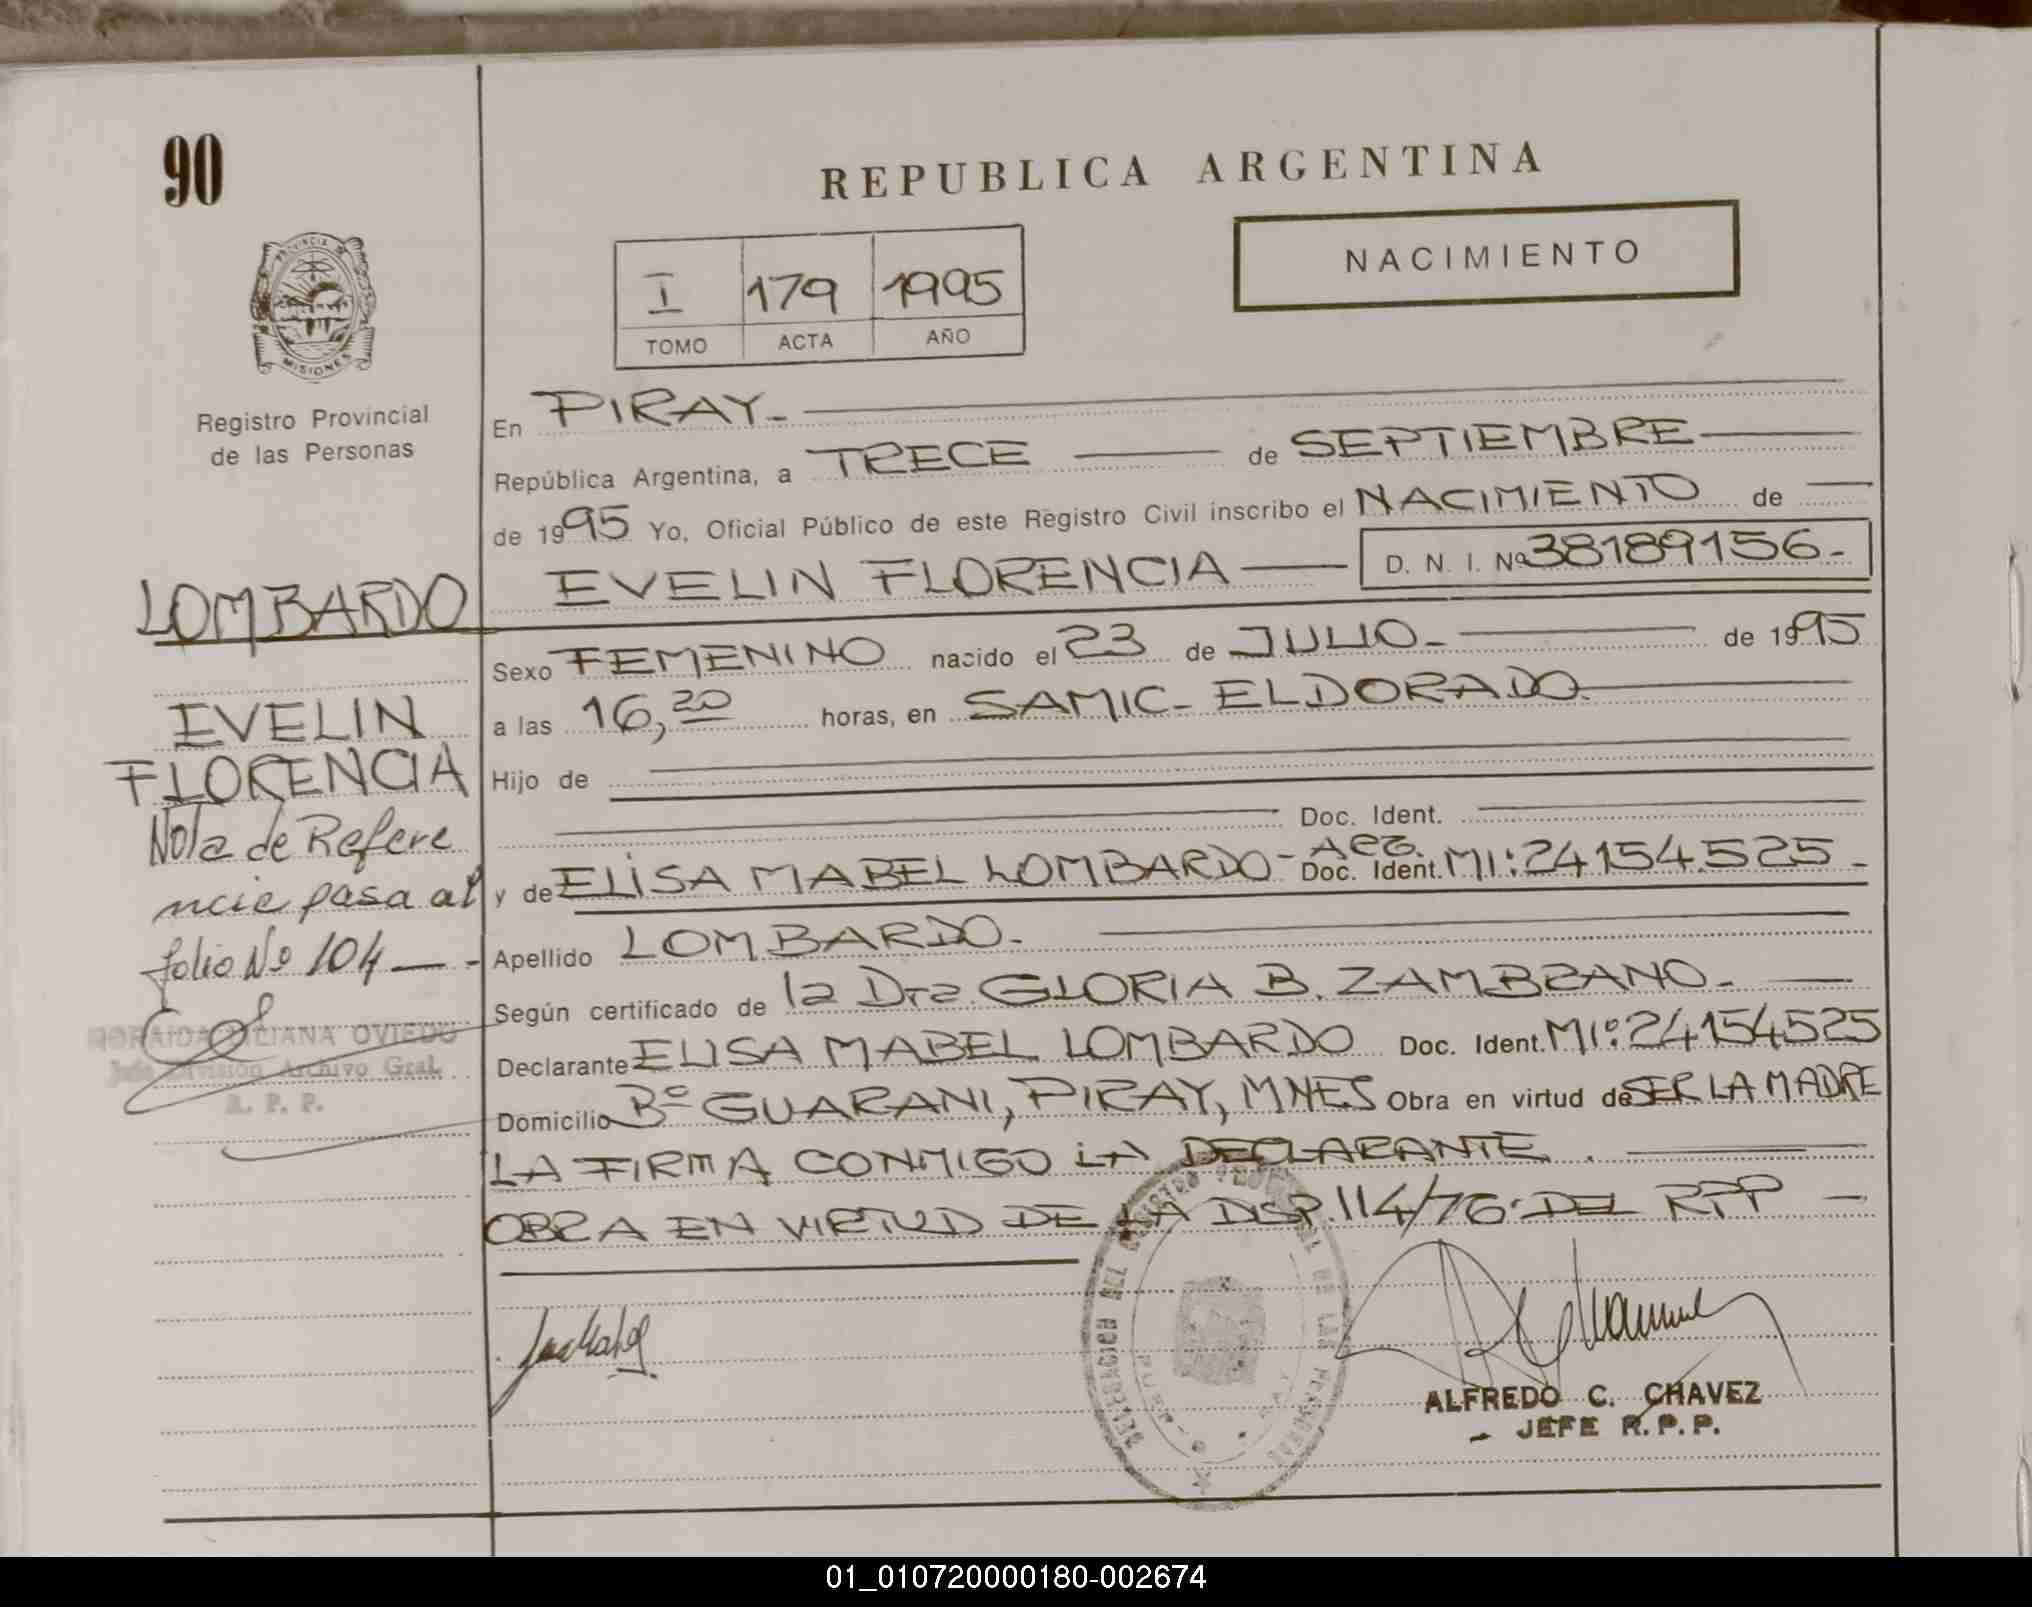 90
REPUBLICA ARGENTINA
NACIMIENTO
I 179 1995
TOMO ACTA AÑO
PROVINCIA DE
MISIONES
Registro Provincial
de las Personas
En PIRAY.-
República Argentina, a TRECE de SEPTIEMBRE
de 1995 Yo, Oficial Público de este Registro Civil inscribo el NACIMIENTO de
EVELIN FLORENCIA D. N. I. Nº 38189156.-
LOMBARDO
EVELIN
FLORENCIA
Nota de Refere
ncie pasa al
folio Nº 104 — -
ZORAIDA LILIANA OVIEDO
Jefe División Archivo Gral.
R. P. P.
Sexo FEMENINO nacido el 23 de JULIO.- de 1995
a las 16,20 horas, en SAMIC- ELDORADO.
Hijo de
Doc. Ident.
y de ELISA MABEL LOMBARDO- ARG. Doc. Ident. MI:24154.525.-
Apellido LOMBARDO.-
Según certificado de la Dra. GLORIA B. ZAMBRANO.-
Declarante ELISA MABEL LOMBARDO Doc. Ident. MI:24154525
Domicilio Bº GUARANI, PIRAY, MNES Obra en virtud de SER LA MADRE
LA FIRMA CONMIGO LA DECLARANTE.
OBRA EN VIRTUD DE LA DISP. 114/76 DEL RPP -
DELEGACION DEL REGISTRO PROVINCIAL DE LAS PERSONAS
ALFREDO C. CHAVEZ
- JEFE R.P.P.
01_010720000180-002674